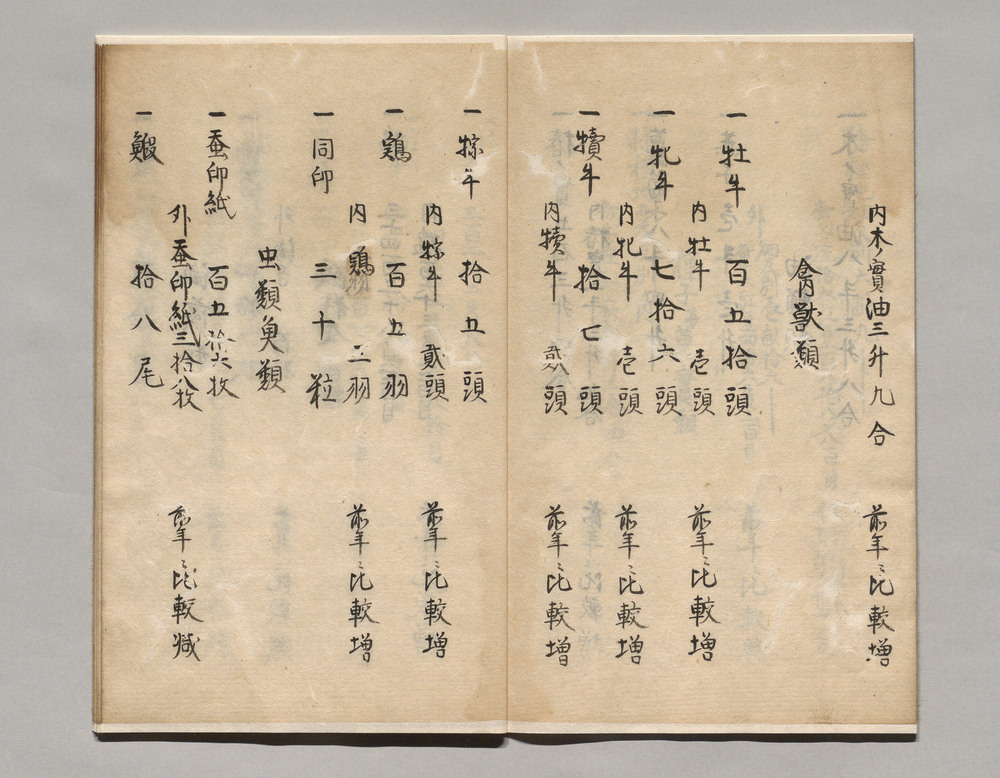 内木ノ實油三升九合 前年ニ比較増
禽獸類
一牡牛 百五拾頭
内牡牛 壱頭 前年ニ比較増
一牝牛 七拾六頭
内牝牛 壱頭 前年ニ比較増
一犢牛 拾七頭
内犢牛 頭 前年ニ比較増
一牛 拾五頭
内牛 貳頭 前年ニ比較増
一鶏 百五羽
内鶏 二羽 前年ニ比較増
一同卵 三十粒
虫類魚類
一蚕卵紙 百五拾六枚
外蚕卵紙三拾八枚 前年ニ比較減
一鰕 拾八尾